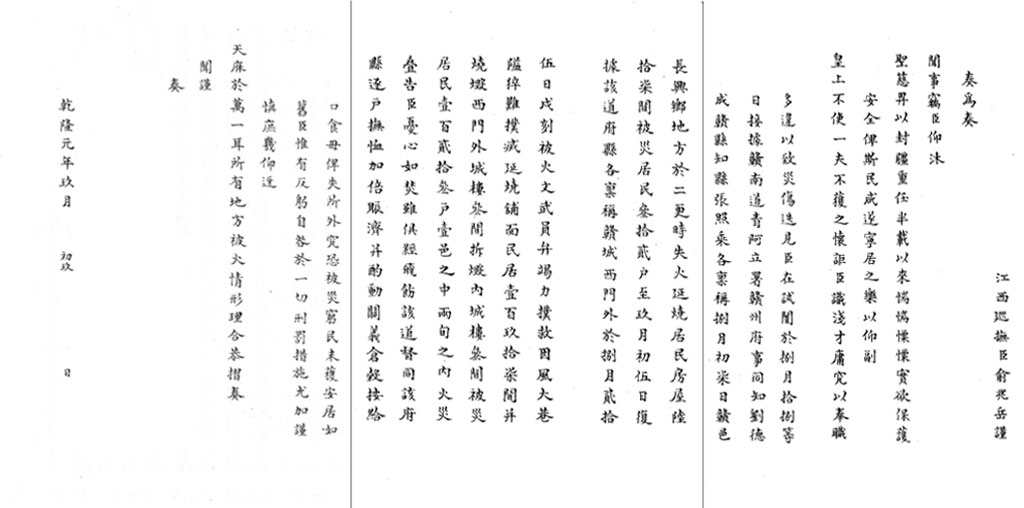 江西巡撫臣俞兆岳謹
奏為奏
聞事竊臣仰沐
聖慈畀以封疆重任半載以來惴惴慄慄實欲保護
安全俾斯民咸遂寧居之樂以仰副
皇上不使一夫不獲之懷詎臣識淺才庸究以奉職
多違以致災傷迭見臣在試闈於捌月拾捌等
日接據贛南道青阿立署贛州府事同知劉德
成贛縣知縣張照乘各稟稱捌月初柒日贛邑
長興鄉地方於二更時失火延境居民房屋陸
拾柒間被災居民叁拾貳戶至玖月初伍日復
據該道府縣各稟稱贛城西門外於捌月貳拾
伍日戌刻被火文武員弁竭力撲救因風大巷
隘猝難撲滅延境鋪面民居壹百玖拾柒間并
燒燬西門外城樓叁間拆燬內城樓叁間被災
居民壹百貳拾叁戶壹邑之中兩旬之內火災
疊告臣憂心如焚雖俱經飛飭該道督同該府
縣逐戶撫恤加倍賑濟并酌動關義倉穀按給
口食毋俾失所外究恐被災窮民未獲安居如
舊臣惟有反躬自咎於一切刑罰措施尤加謹
慎庶幾仰迓
天庥於萬一耳所有地方被火情形理合恭摺奏
聞謹
奏
乾隆元年玖月 初玖 日